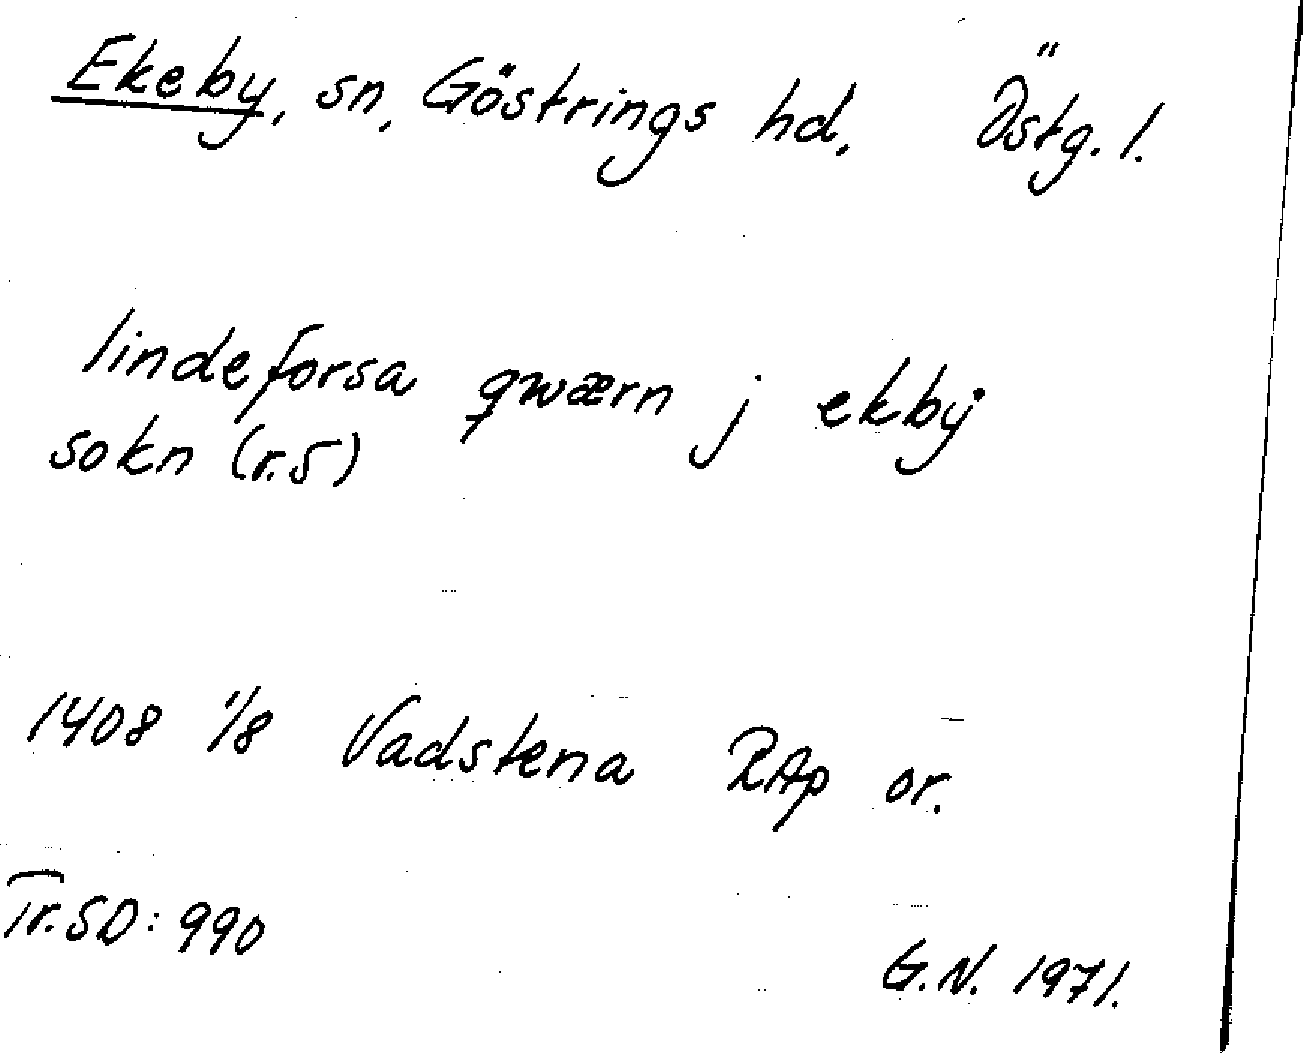 Ekeby, sn, Göstrings hd, Östg. l.
lindeforsa qwærn j ekbÿ
sokn (r.5)
1408 1/8 Vadstena RAp or.
Tr. SD: 990
G.N. 1971.